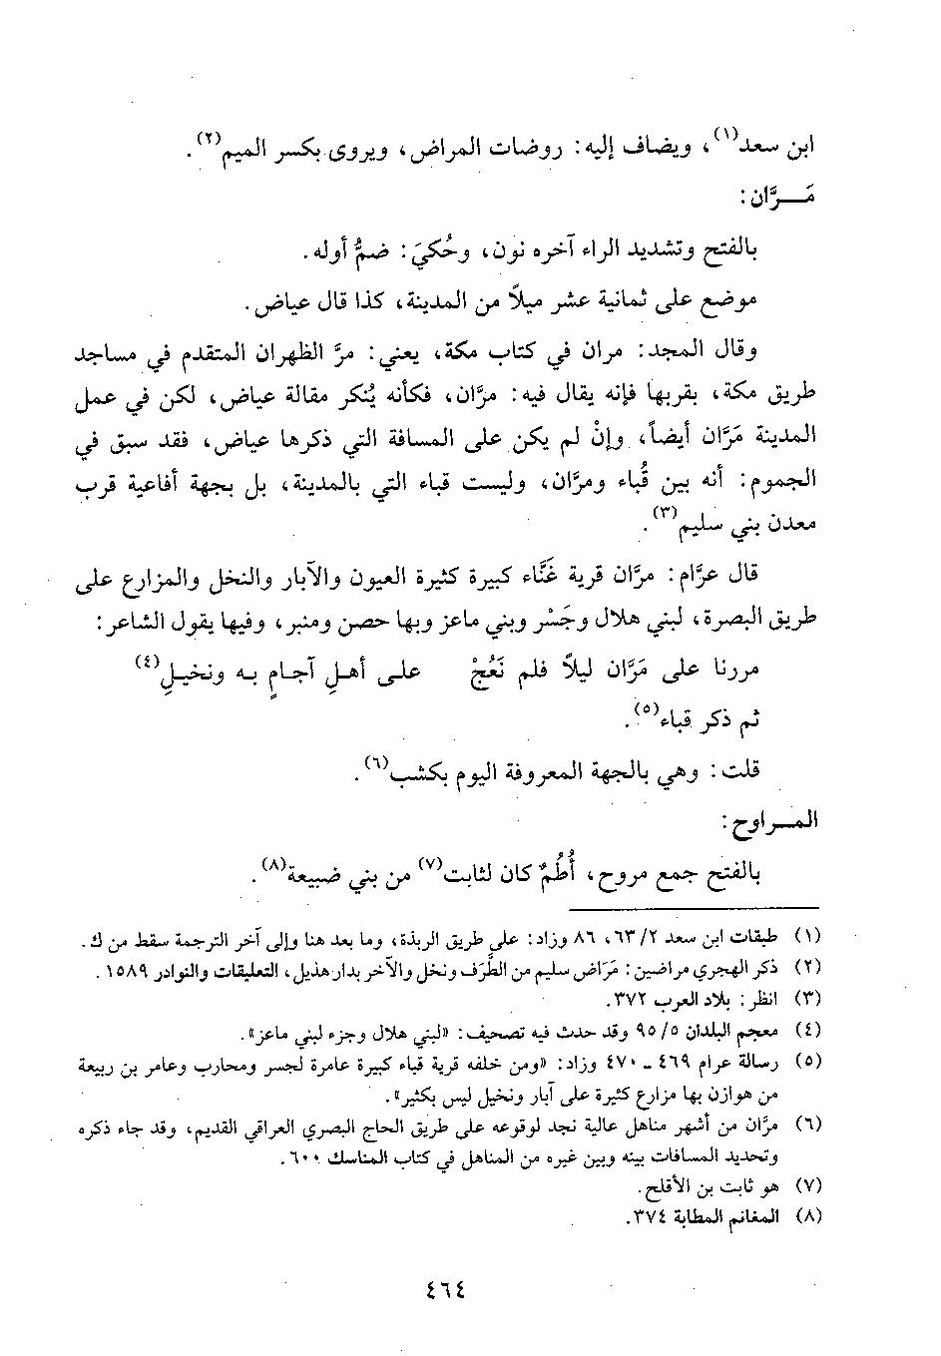 ابن سعد(١)، ويضاف إليه: روضات المراض، ويروى بكسر الميم(٢).
مَـــرَّان:
بالفتح وتشديد الراء آخره نون، وحُكيَ: ضمُّ أوله.
موضع على ثمانية عشر ميلاً من المدينة، كذا قال عياض.
وقال المجد: مران في كتاب مكة، يعني: مرَّ الظهران المتقدم في مساجد
طريق مكة، بقربها فإنه يقال فيه: مرَّان، فكأنه يُنكر مقالة عياض، لكن في عمل
المدينة مَرَّان أيضاً، وإنْ لم يكن على المسافة التي ذكرها عياض، فقد سبق في
الجموم: أنه بين قُباء ومرَّان، وليست قباء التي بالمدينة، بل بجهة أفاعية قرب
معدن بني سليم(٣).
قال عرَّام: مرَّان قرية غَنَّاء كبيرة كثيرة العيون والآبار والنخل والمزارع على
طريق البصرة، لبني هلال وجَسْر وبني ماعز وبها حصن ومنبر، وفيها يقول الشاعر:
مررنا على مَرَّان ليلاً فلم نَعُجْ على أهـلِ آجـامٍ بـه ونخيـلِ(٤)
ثم ذكر قباء(٥).
قلت: وهي بالجهة المعروفة اليوم بكشب(٦).
المــراوح:
بالفتح جمع مروح، أُطُمٌ كان لثابت(٧) من بني ضبيعة(٨).
(١) طبقات ابن سعد ٢/ ٦٣، ٨٦ وزاد: على طريق الربذة، وما بعد هنا وإلى آخر الترجمة سقط من ك.
(٢) ذكر الهجري مراضين: مَرَاض سليم من الطَّرَف ونخل والآخر بدار هذيل، التعليقات والنوادر ١٥٨٩.
(٣) انظر: بلاد العرب ٣٧٢.
(٤) معجم البلدان ٥/ ٩٥ وقد حدث فيه تصحيف: «لبني هلال وجزء لبني ماعز».
(٥) رسالة عرام ٤٦٩ ـ ٤٧٠ وزاد: «ومن خلفه قرية قباء كبيرة عامرة لجسر ومحارب وعامر بن ربيعة
من هوازن بها مزارع كثيرة على آبار ونخيل ليس بكثير».
(٦) مرَّان من أشهر مناهل عالية نجد لوقوعه على طريق الحاج البصري العراقي القديم، وقد جاء ذكره
وتحديد المسافات بينه وبين غيره من المناهل في كتاب المناسك ٦٠٠.
(٧) هو ثابت بن الأقلح.
(٨) المغانم المطابة ٣٧٤.
٤٦٤